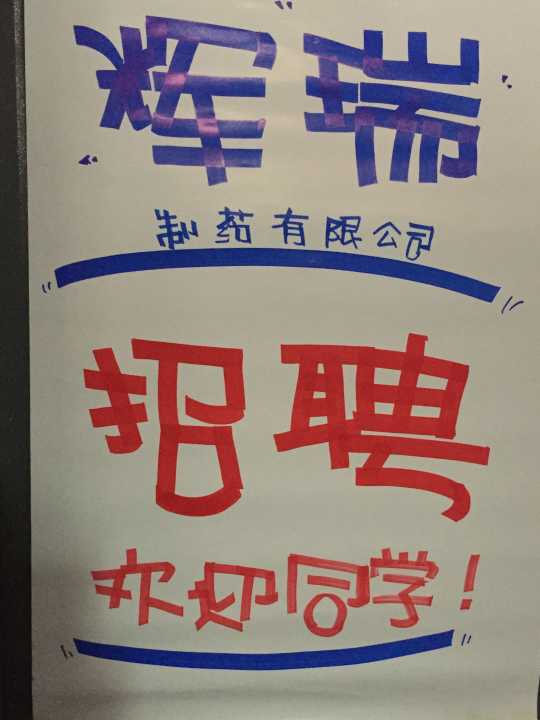 瑞
制药有限公司
招聘
欢迎同学！